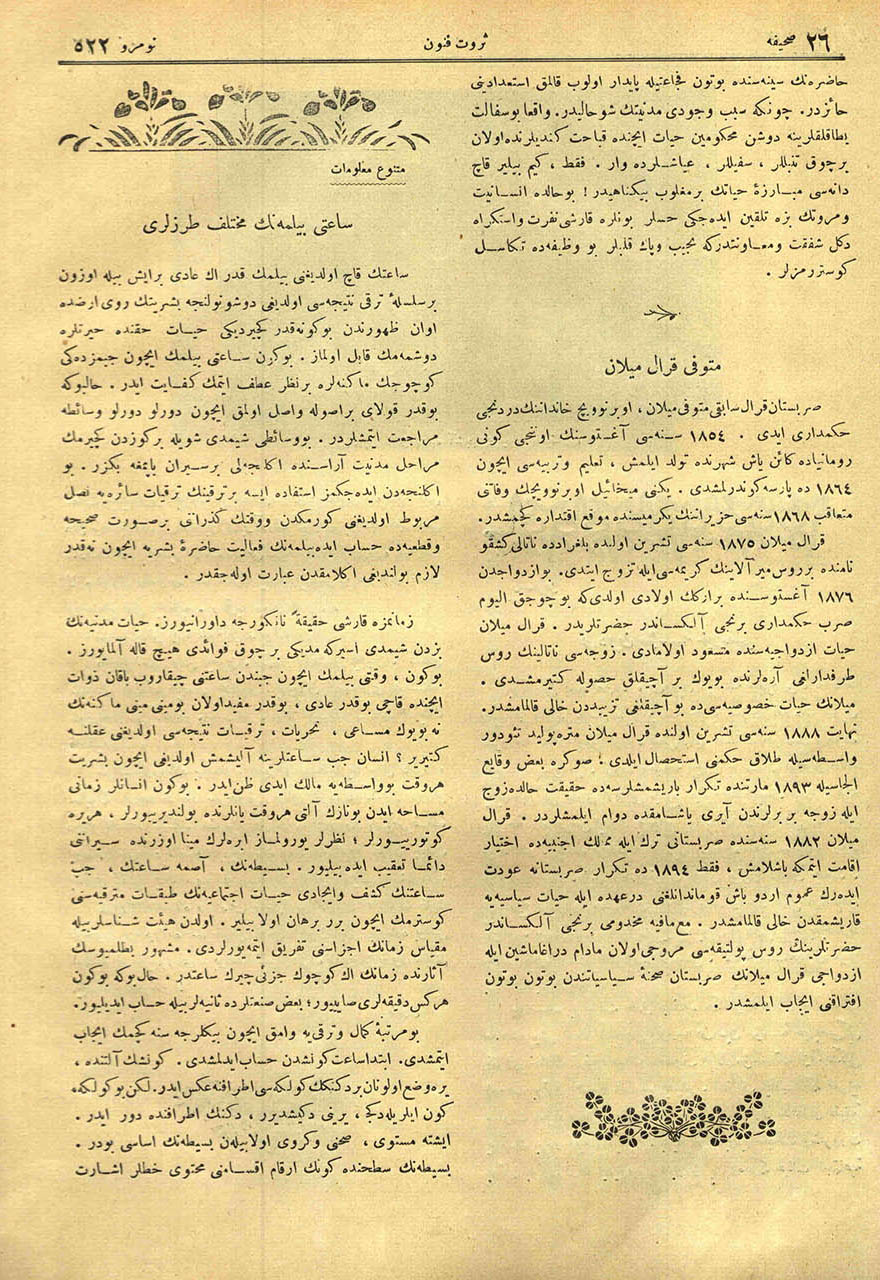 صحیفه ٢٦
ثروت فنون
نومرو ٥٢٢
حاضره‌نك سینه‌سنده بوتون فجاعتیله پایدار اولوب قالمق استعدادینی
حائزدر. چونکه سبب وجودی مدنیتك شو حالیدر. واقعا بو سفالت
بطاقلقلرینه دوشن محکومین حیات ایچنده قباحت کندیلرنده اولان
برچوق تنبللر ، سفیللر ، عیاشلرده وار . فقط ، کیم بیلیر قاچ
دانه‌سی مبارزۀ حیاتك بر مغلوب بیکناهیدر ! بو حالده انسانیت
و مروتك بزه تلقین ایده‌جکی حسلر بونلره قارشی نفرت و استکراه
دکل شفقت و معاونتدرکه نجیب و پاك قلبلر بو وظیفه‌ده تکاسل
کوسترمزلر .
متوفی قرال میلان
صربستان قرال سابقی متوفی میلان ، اوبرنوویچ خانداننك دردنجی
حکمداری ایدی . ١٨٥٤ سنه‌سی آغستوسنك اوننجی کونی
رومانیاده کائن یاش شهرنده تولد ایلمش ، تعلیم و تربیه‌سی ایچون
١٨٦٤ ده پارسه کوندرلمشدی . یکنی میخائیل اوبرنوویچك وفاتنی
متعاقب ١٨٦٨ سنه‌سی حزیراننك یکرمیسنده موقع اقتداره کچمشدر.
قرال میلان ١٨٧٥ سنه‌سی تشرین اولنده بلغرادده ناتالی کشقو
نامنده بر روس میرآلاینك کریمه‌سی ایله تزوج ایتدی. بو ازدواجدن
١٨٧٦ آغستوسنده بر ارکك اولادی اولدی که بو چوجق الیوم
صرب حکمداری برنجی آلکساندر حضرتلریدر . قرال میلان
حیات ازدواجیه‌سنده مسعود اولامادی . زوجه‌سی ناتالینك روس
طرفدارلغی آره‌لرنده بویوك بر آچیقلق حصوله کتیرمشدی .
میلانك حیات خصوصیه‌سی ده بو آچیقلغی تزییددن خالی قالمامشدر.
نهایت ١٨٨٨ سنه‌سی تشرین اولنده قرال میلان متره‌پولید تئودور
واسطه‌سیله طلاق حکمنی استحصال ایلدی ؛ صوکره بعض وقایع
الجاسیله ١٨٩٣ مارتنده تکرار باریشمشلرسه‌ده حقیقت حالده زوج
ایله زوجه بربرلرندن آیری یاشامقده دوام ایلمشلردر . قرال
میلان ١٨٨٢ سنه‌سنده صربستانی ترك ایله ممالك اجنبیه‌ده اختیار
اقامت ایتمکه باشلامش ، فقط ١٨٩٤ ده تکرار صربستانه عودت
ایده‌رك عموم اردو باش قوماندانلغنی درعهده ایله حیات سیاسیه‌یه
قاریشمقدن خالی قالمامشدر . مع‌مافیه مخدومی برنجی آلکساندر
حضرتلرینك روس پولتیقه‌سی مروجی اولان مادام دراغا ماشین ایله
ازدواجی قرال میلانك صربستان صحنۀ سیاسیاتندن بوتون بوتون
افتراقنی ایجاب ایلمشدر .
متنوع معلومات
ساعتی بیلمه‌نك مختلف طرزلری
ساعتك قاچ اولدیغنی بیلمك قدر اك عادی بر ایش بیله اوزون
بر سلسلۀ ترقی نتیجه‌سی اولدیغی دوشونولنجه بشریتك روی ارضده
اوان ظهورندن بوکونه قدر کچیردیکی حیات حقنده حیرتلره
دوشمه‌مك قابل اولماز . بوکون ساعتی بیلمك ایچون جیمزده‌کی
کوچوجك ماکنه‌لره بر نظر عطف ایتمك کفایت ایدر . حالبوکه
بو قدر قولای بر اصوله واصل اولمق ایچون دورلو دورلو وسائطه
مراجعت ایتمشلردر . بو وسائطی شیمدی شویله بر کوزدن کچیرمك
مراحل مدنیت آراسنده اکلنجه‌لی بر سیران یاپمغه بکزر . بو
اکلنجه‌دن ایده‌جکمز استفاده ایسه بر ترقینك ترقیات سائره‌یه نصل
مربوط اولدیغنی کورمکدن و وقتك کذرانی بر صورت صحیحه
و قطعیه‌ده حساب ایده‌بیلمه‌نك فعالیت حاضرۀ بشریه ایچون نه‌قدر
لازم بولندیغنی اکلامقدن عبارت اوله‌جقدر .
زمانمزه قارشی حقیقةً نانکورجه داورانیورز. حیات مدنیه‌نك
بزدن شیمدی اسیرکه‌مدیکی بر چوق فوائدی هیچ قاله آلمایورز .
بوکون ، وقتی بیلمك ایچون جبندن ساعتی چیقاروب باقان ذوات
ایچنده قاچی بوقدر عادی ، بوقدر مفید اولان بو مینی مینی ماکنه‌نك
نه بویوك مساعی ، تحریات ، ترقیات نتیجه‌سی اولدیغنی عقلنه
کتیریر ؟ انسان جب ساعتلرینه آلیشمش اولدیغی ایچون بشریت
هروقت بو واسطه‌یه مالك ایدی ظن ایدر . بوکون انسانلر زمانی
مساحه ایدن بو نازك آلتی هروقت یانلرنده بولندیریيورلر ، هریره
کوتوریيورلر ؛ نظرلر یورولماز ابره‌لرك مینا اوزرنده سیراننی
دائما تعقیب ایده‌بیلیور . بسیطه‌نك ، آصمه ساعتك ، جب
ساعتنك کشف و ایجادی حیات اجتماعیه‌نك طبقات مترقیه‌سنی
کوسترمك ایچون برر برهان اولابیلیر . اولدن هیئت شناسلر بیله
مقیاس زمانك اجزاسنی تفریق ایتمه‌یورلردی . مشهور بطلمیوسك
آثارنده زمانك اك کوچوك جزئی چیرك ساعتدر . حال بوکه بوکون
هرکس دقیقه‌لری صاییيور؛ بعض صنعتلرده ثانیه‌لر بیله حساب ایدیلیور.
بو مرتبۀ کمال و ترقی‌یه وارمق ایچون بیکلرجه سنه کچمك ایجاب
ایتمشدی. ابتدا ساعت کونشدن حساب ایدلمشدی . کونشك آلتنده ،
یره وضع اولونان بر دکنكك کولکه‌سی اطرافنه عکس ایدر. لکن بو کولکه،
کون ایلریله‌دکجه ، یرینی دکیشدیرر ، دکنك اطرافنده دور ایدر .
ایشته مستوی ، صحنی و کروی اولابیله‌ن بسیطه‌نك اساسی بودر .
بسیطه‌نك سطحنده کونك ارقام اقسامنی محتوی خطلر اشارت